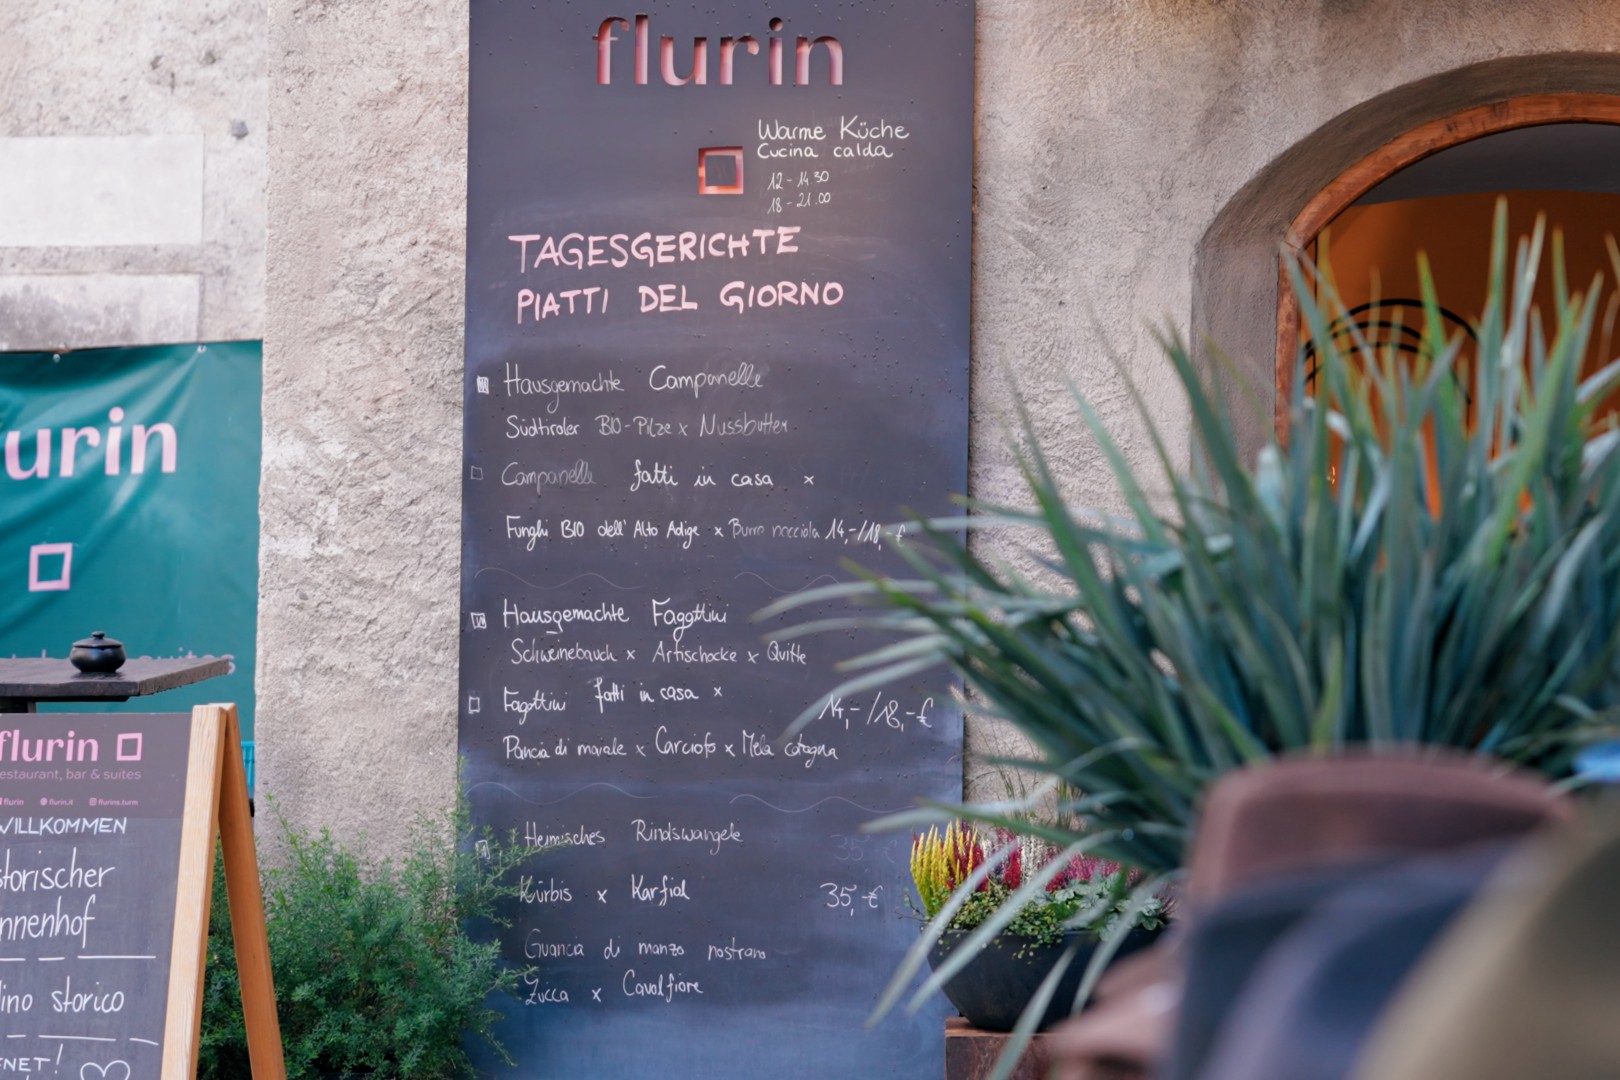 flurin
Warme Küche
Cucina calda
12 - 14.30
18 - 21.00
TAGESGERICHTE
PIATTI DEL GIORNO
Hausgemachte Campanelle
Südtiroler BIO-Pilze x Nussbutter
Campanelle fatti in casa x
Funghi BIO dell' Alto Adige x Burro nocciola 14,-/18,-€
Hausgemachte Fagottini
Schweinebauch x Artischocke x Quitte
Fagottini fatti in casa x
14,-/18,-€
Pancia di maiale x Carciofo x Mela cotogna
Heimisches Rindswangele
Kürbis x Karfiol 35,-€
Guancia di manzo nostrano
Zucca x Cavolfiore
urin
suites
flurin
estaurant, bar & suites
flurin flurin.it flurins.turm
WILLKOMMEN
storischer
nnenhof
ino storico
FNET!